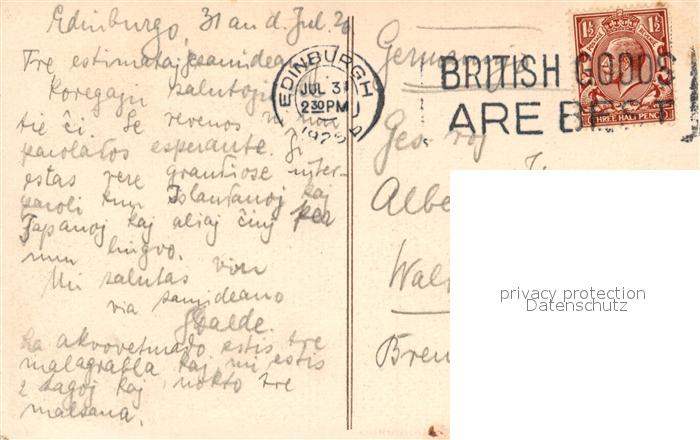 Edinburgo, 31 an d. Jul. 26
Tre estimataj gesamideanoj
Koregajn salutojn
tie ĉi. Se revenos ni nur
parolados esperante. Ĝi
estas vere grandiose inter-
paroli kun Islandanoj kaj
Japanoj kaj aliaj ĉiuj per
unu lingvo.
Mi salutas vin
via samideano
La akvoveturado estis tre
malagrabla kaj mi estis
2 tagoj kaj nokto tre
malsana.
EDINBURGH
JUL 31
2 30 PM
BRITISH GOODS
ARE BEST
1½ 1½
THREE HALF PENCE
Germany
Albe
Wal
Brem
privacy protection
Datenschutz